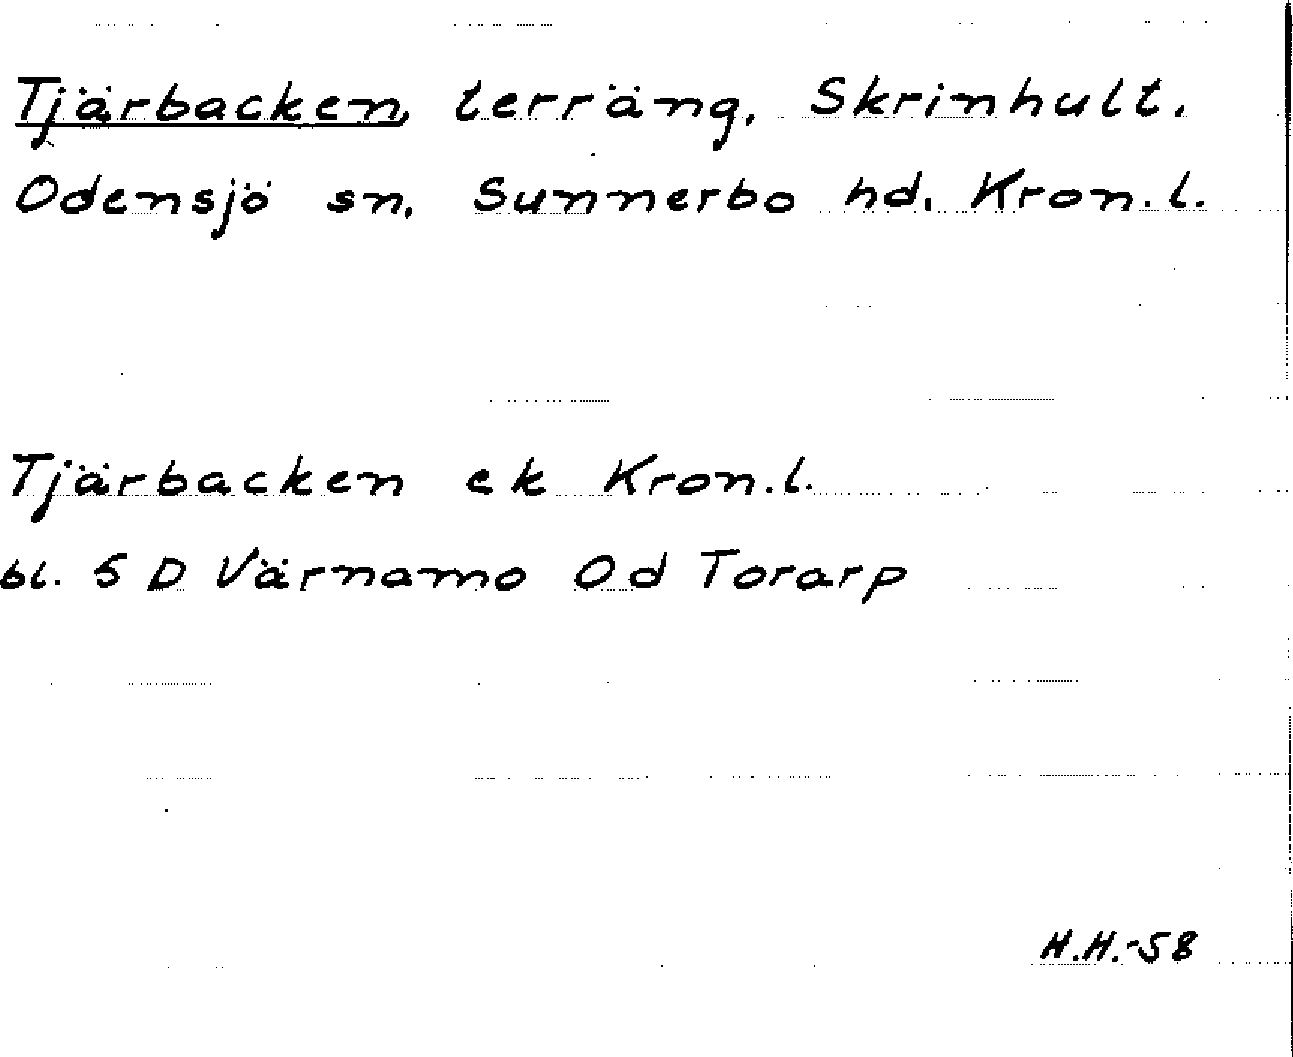 Tjärbacken, terräng, Skrinhult.
Odensjö sn, Sunnerbo hd. Kron.l.
Tjärbacken ek Kron.l.
bl. 5 D Värnamo Od Torarp
H.H.-58